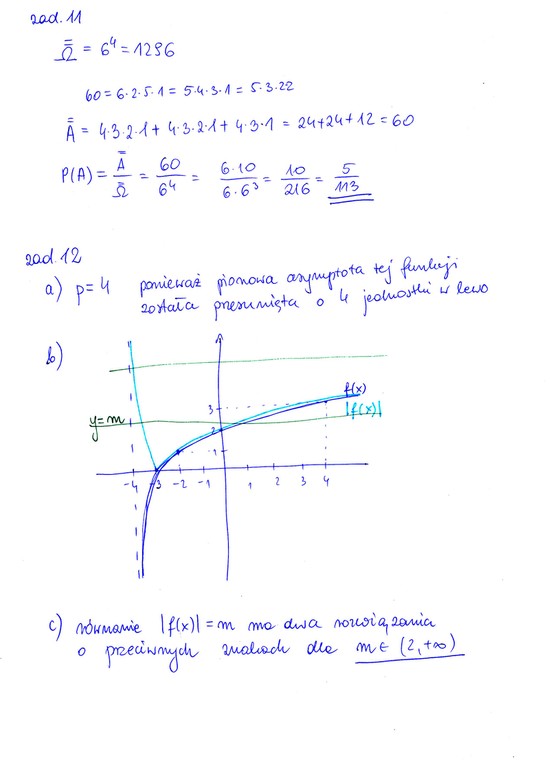 zad. 11
Ω̿ = 6⁴ = 1296
60 = 6·2·5·1 = 5·4·3·1 = 5·3·22
A̿ = 4·3·2·1 + 4·3·2·1 + 4·3·1 = 24+24+12 = 60
P(A) = A̿/Ω̿ = 60/6⁴ = 6·10/6·6³ = 10/216 = 5/113
zad. 12
a) p=4 ponieważ pionowa asymptota tej funkcji
została przesunięta o 4 jednostki w lewo
b)
f(x)
|f(x)|
y=m
3
2
1
-4 -3 -2 -1 1 2 3 4
c) równanie |f(x)| = m ma dwa rozwiązania
o przeciwnych znakach dla m∈ (2, +∞)